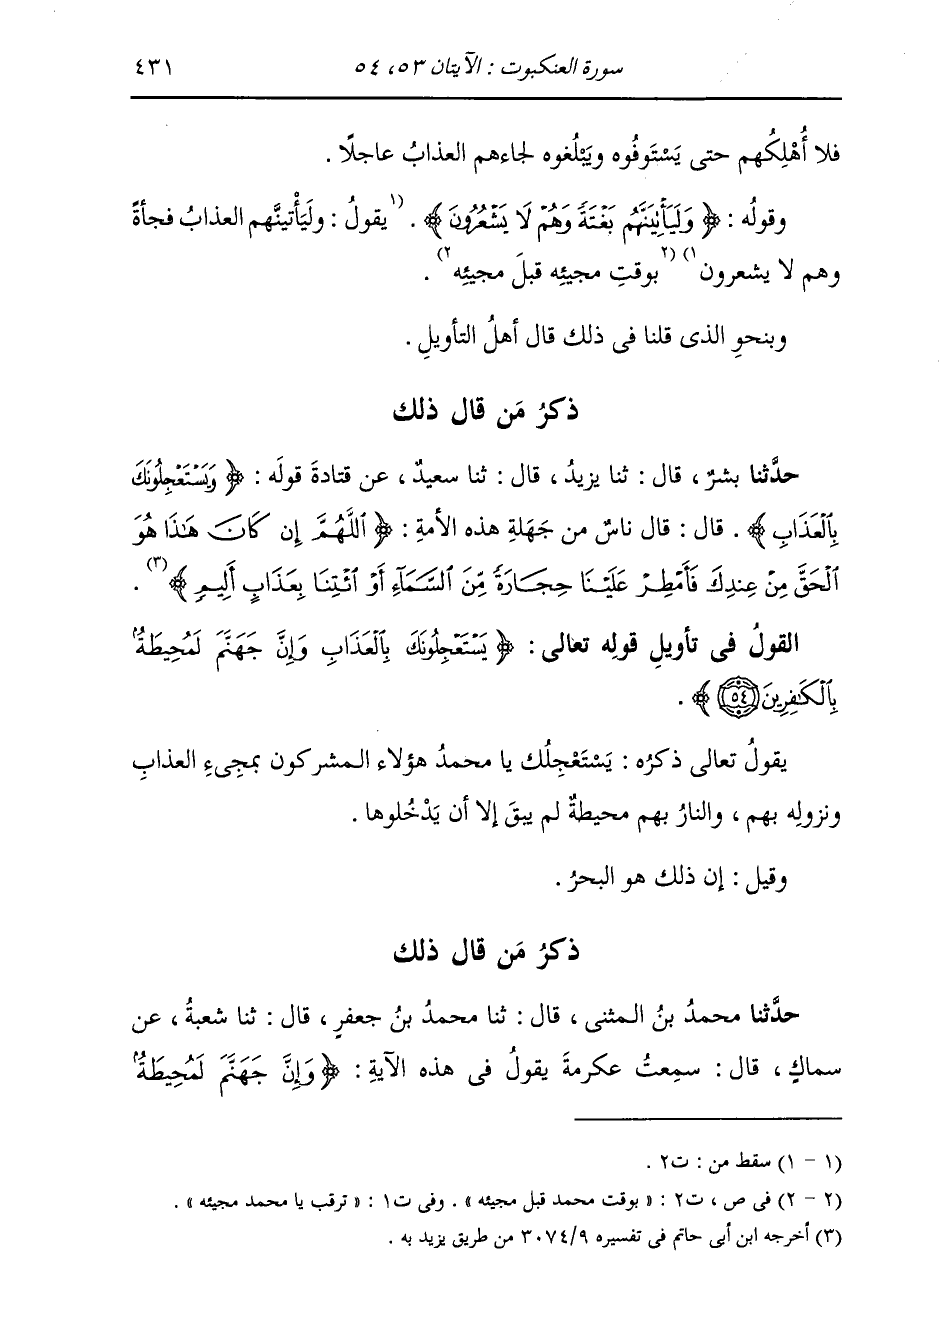 سورة العنكبوت : الآيتان ٥٣، ٥٤ ٤٣١
فلا أُهْلِكُهم حتى يَسْتَوفُوه ويَبْلُغوه لجاءهم العذابُ عاجلًا .
وقولُه : ﴿ وَلَيَأْتِيَنَّهُم بَغْتَةً وَهُمْ لَا يَشْعُرُونَ ﴾ . (١يقولُ : ولَيَأْتينَّهم العذابُ فجأةً
وهم لا يشعرون١) (٢بوقتِ مجيئِه قبلَ مجيئِه٢) .
وبنحوِ الذى قلنا فى ذلك قال أهلُ التأويلِ .
ذكرُ مَن قال ذلك
حدَّثنا بشرٌ ، قال : ثنا يزيدُ ، قال : ثنا سعيدٌ ، عن قتادةَ قولَه : ﴿ وَيَسْتَعْجِلُونَكَ
بِٱلْعَذَابِ ﴾ . قال : قال ناسٌ من جَهَلةِ هذه الأمةِ : ﴿ ٱللَّهُمَّ إِن كَانَ هَٰذَا هُوَ
ٱلْحَقَّ مِنْ عِندِكَ فَأَمْطِرْ عَلَيْنَا حِجَارَةً مِّنَ ٱلسَّمَآءِ أَوْ ٱئْتِنَا بِعَذَابٍ أَلِيمٍ ﴾(٣) .
القولُ فى تأويلِ قولِه تعالى : ﴿ يَسْتَعْجِلُونَكَ بِٱلْعَذَابِ وَإِنَّ جَهَنَّمَ لَمُحِيطَةٌۢ
بِٱلْكَٰفِرِينَ ٥٤ ﴾ .
يقولُ تعالى ذكرُه : يَسْتَعْجِلُك يا محمدُ هؤلاء المشركون بمجِىءِ العذابِ
ونزولِه بهم ، والنارُ بهم محيطةٌ لم يبقَ إلا أن يَدْخُلوها .
وقيل : إن ذلك هو البحرُ .
ذكرُ مَن قال ذلك
حدَّثنا محمدُ بنُ المثنى ، قال : ثنا محمدُ بنُ جعفرٍ ، قال : ثنا شعبةُ ، عن
سماكٍ ، قال : سمِعتُ عكرمةَ يقولُ فى هذه الآيةِ : ﴿ وَإِنَّ جَهَنَّمَ لَمُحِيطَةٌۢ
(١ - ١) سقط من : ت٢ .
(٢ - ٢) فى ص ، ت٢ : « بوقت محمد قبل مجيئه » . وفى ت١ : « ترقب يا محمد مجيئه » .
(٣) أخرجه ابن أبى حاتم فى تفسيره ٣٠٧٤/٩ من طريق يزيد به .